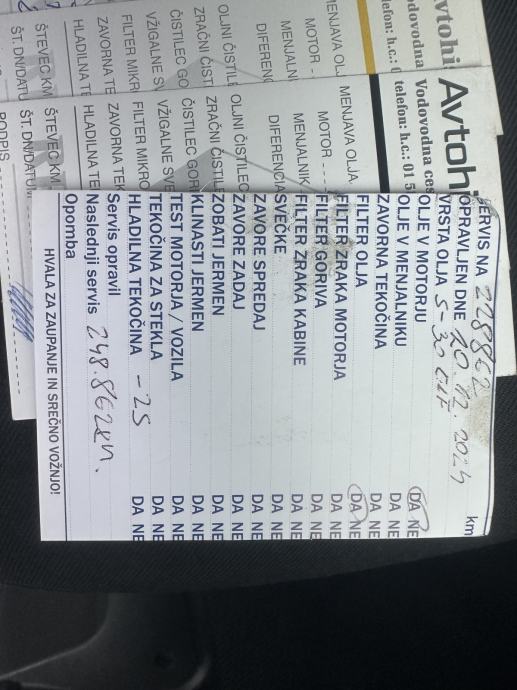 SERVIS NA 228862 km
OPRAVLJEN DNE 20.12.2024
VRSTA OLJA 5-30
OLJE V MOTORJU DA NE
OLJE V MENJALNIKU DA NE
ZAVORNA TEKOČINA DA NE
FILTER OLJA DA NE
FILTER ZRAKA MOTORJA DA NE
FILTER GORIVA DA NE
FILTER ZRAKA KABINE DA NE
SVEČKE DA NE
ZAVORE SPREDAJ DA NE
ZAVORE ZADAJ DA NE
ZOBATI JERMEN DA NE
KLINASTI JERMEN DA NE
TEST MOTORJA / VOZILA DA NE
TEKOČINA ZA STEKLA DA NE
HLADILNA TEKOČINA -25 DA NE
Servis opravil
Naslednji servis 248.862km.
Opomba
HVALA ZA ZAUPANJE IN SREČNO VOŽNJO!
Avtohi
Vodovodna ces
telefon: h.c.: 01 5
MENJAVA OLJA
MOTOR
MENJALNIK
DIFERENCIA
OLJNI ČISTILEC
ZRAČNI ČISTILE
ČISTILEC GORI
VŽIGALNE SVE
FILTER MIKRO
ZAVORNA TEK
HLADILNA TE
ŠTEVEC KM
ŠT. DN/DATUM
PODPIS
vtohi
Vodovodna
elefon: h.c.:
MENJAVA OLJ
MOTOR -
MENJALN
DIFERENC
OLJNI ČISTIL
ZRAČNI ČIST
ČISTILEC GO
VŽIGALNE SV
FILTER MIKR
ZAVORNA TE
HLADILNA TE
ŠTEVEC KM
ŠT. DN/DATU